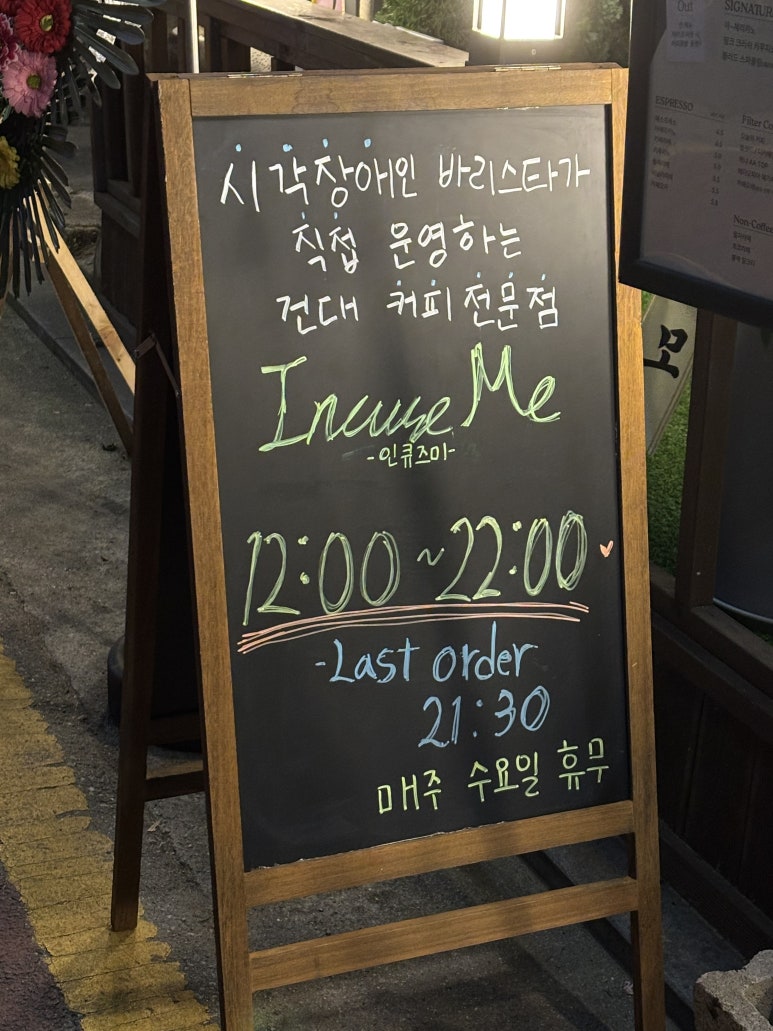 시각장애인 바리스타가
직접 운영하는
건대 커피전문점
Incuse Me
-인큐즈미-
12:00 ~ 22:00
-Last order
21:30
매주 수요일 휴무
Out
SIGNATUR
ESPRESSO
Filter Co
Non-Coffee